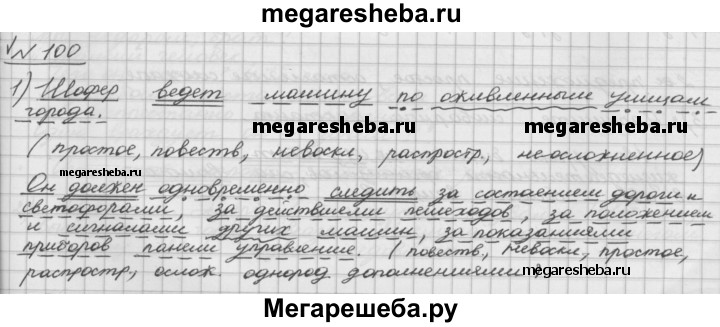 megaresheba.ru
√ № 100
1) Шофер ведет машину по оживленным улицам
города.
megaresheba.ru megaresheba.ru
(простое, повеств, невоскл, распростр, неосложненное)
megaresheba.ru
Он должен одновременно следить за состоянием дороги и
светофорами, за действиями пешеходов, за положением
и сигналами других машин, за показаниями
приборов панели управление. (повеств, невоскл, простое,
распростр, ослож. однород дополнениями)
megaresheba.ru
Мегарешеба.ру